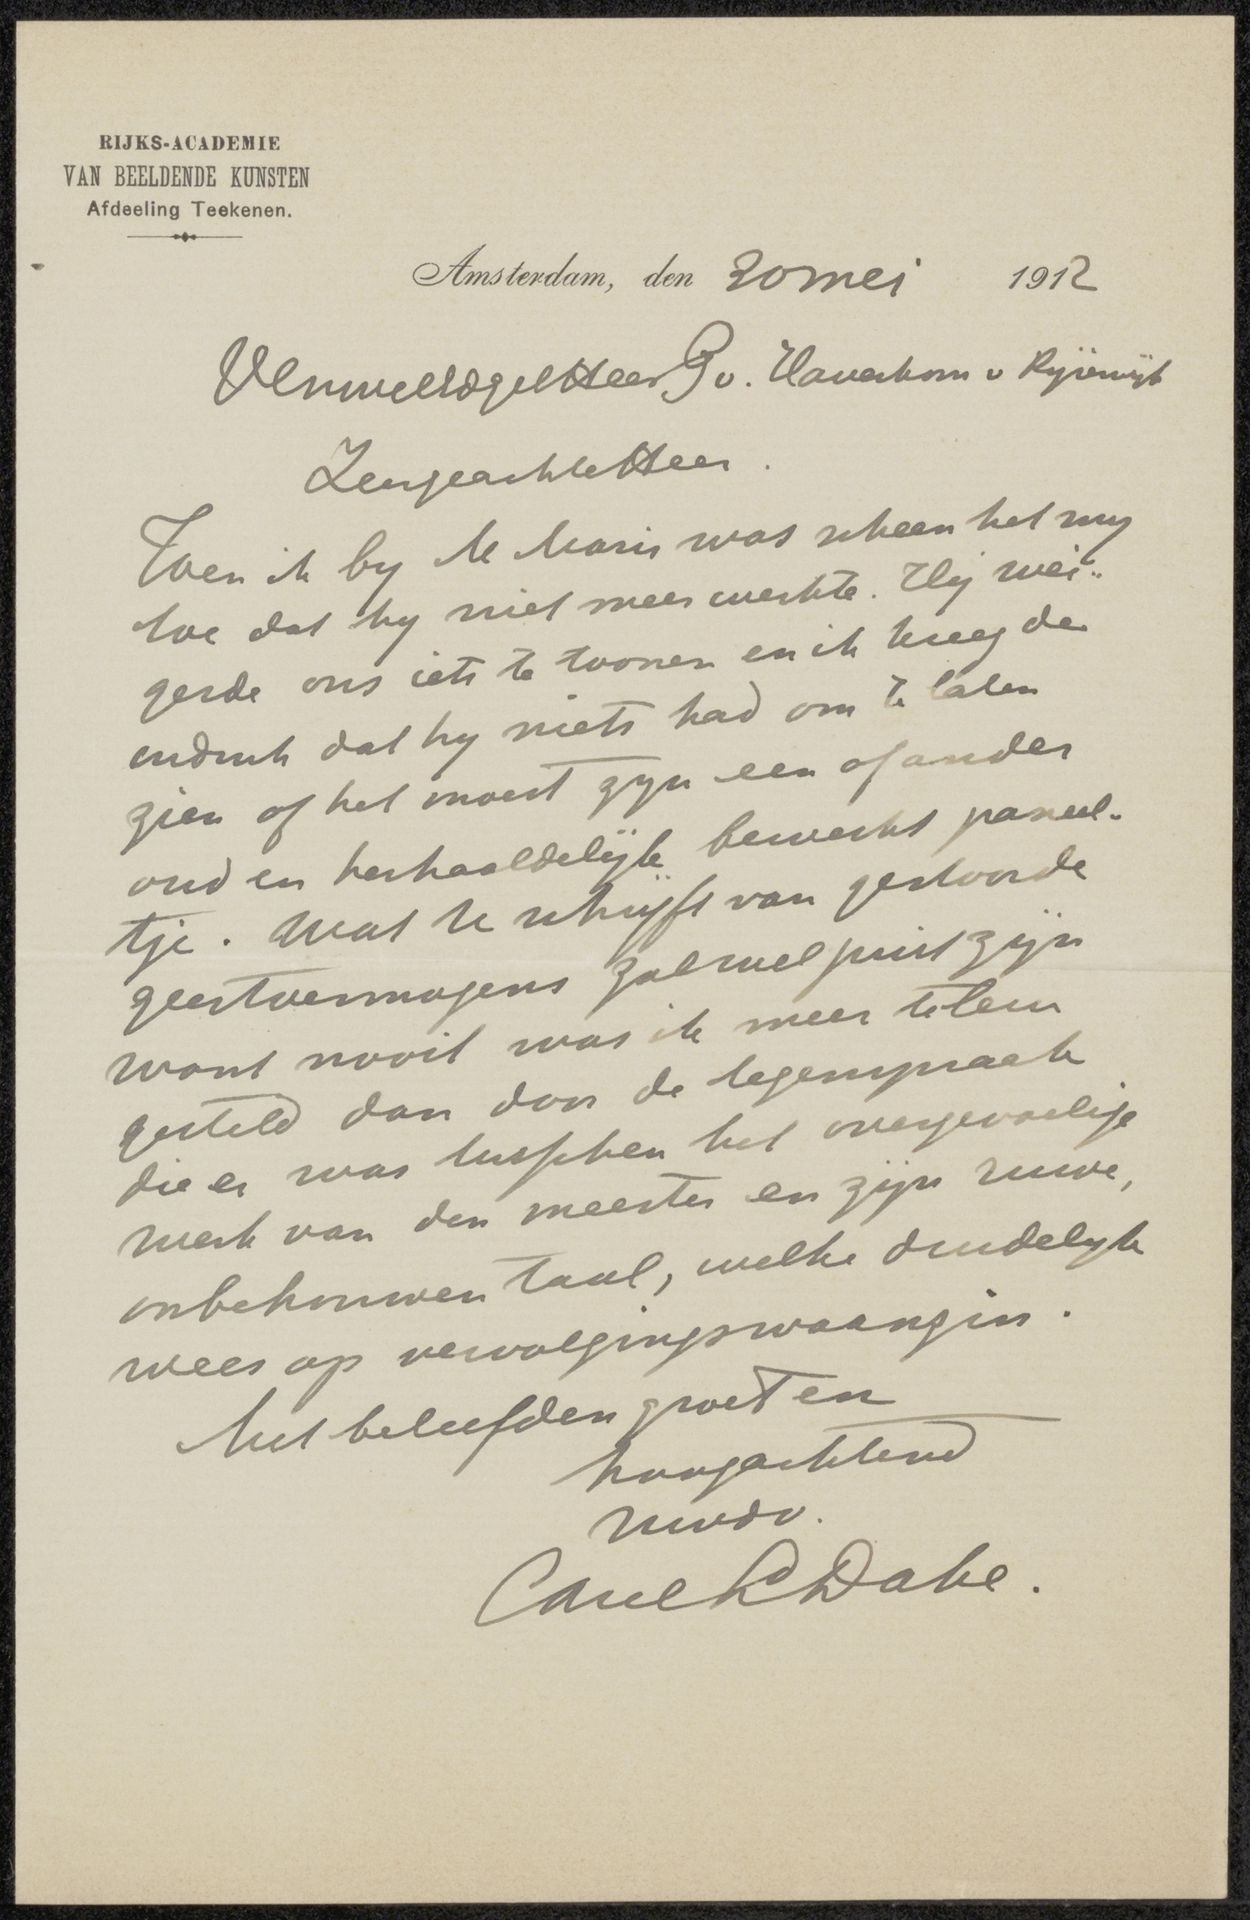 RIJKS-ACADEMIE
VAN BEELDENDE KUNSTEN
Afdeeling Teekenen.
Amsterdam, den 20 mei 1912
WelEdelgeb Heer P v. Haverkorn v Rijsewijk
Zeergeachte Heer.
Toen ik by M Maris was scheen het my
toe dat hy niet meer werkte. Hij wei-
gerde ons iets te toonen en ik kreeg den
indruk dat hy niets had om te laten
zien of het moest zyn een of ander
oud en herhaaldelijk bewerkt paneel-
tje. Wat U schrijft van gestoorde
geestvermogens zal wel juist zijn
want nooit was ik meer teleur
gesteld dan door de tegenspraak
die er was tusschen het overgevoelige
werk van den meester en zijn ruwe,
onbehouwen taal, welke duidelyk
wees op vervolgingswaanzin.
Met beleefden groet en
hoogachtend
Uwdv.
Carel L Dake.